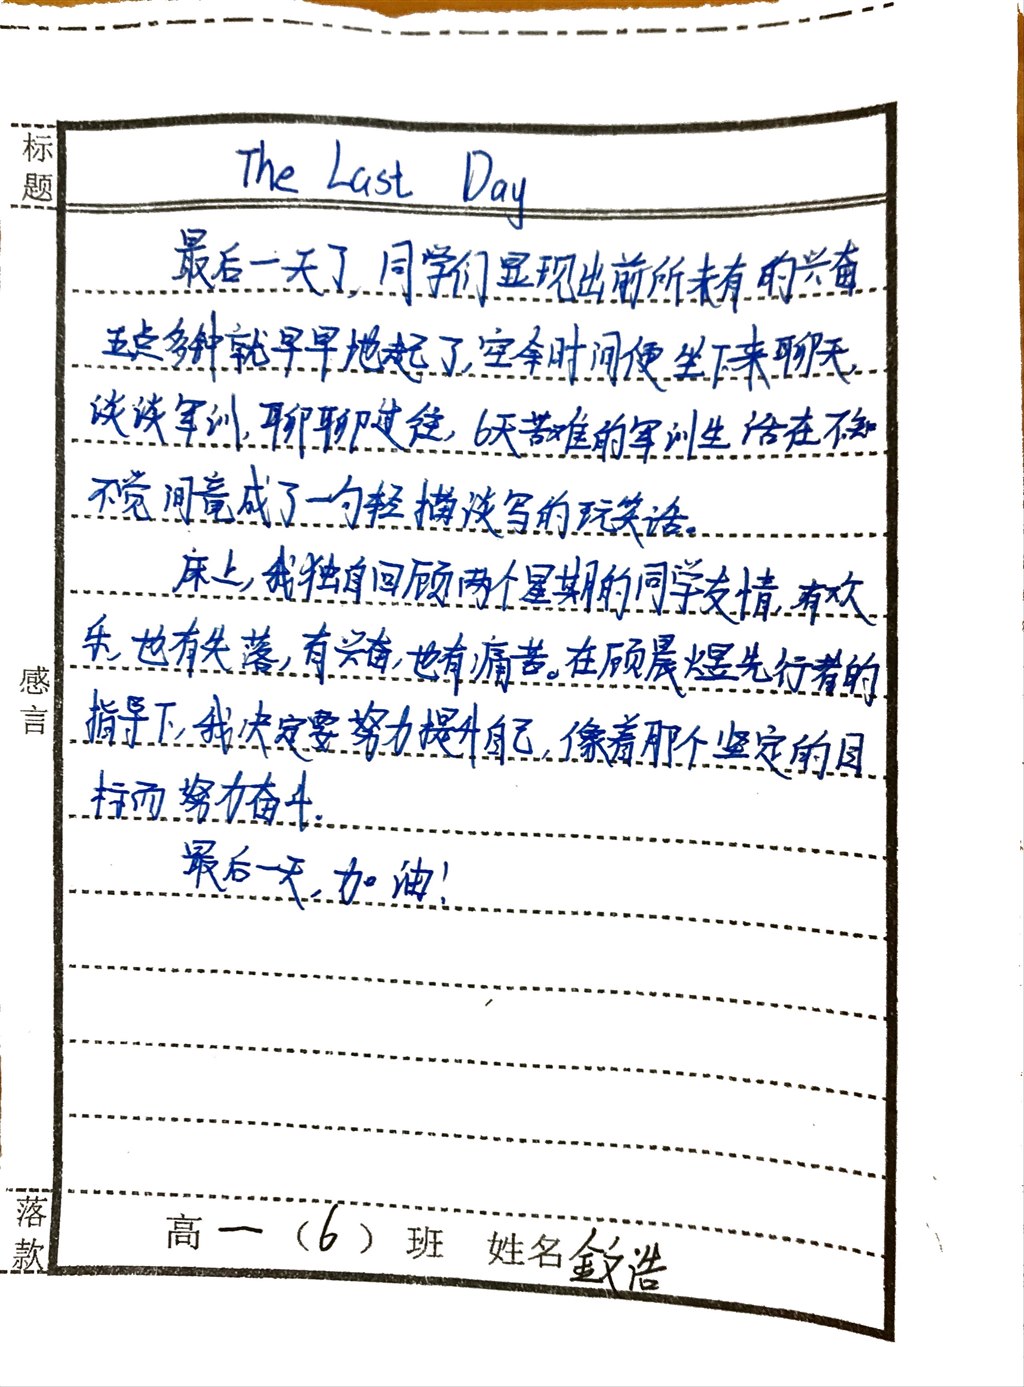 标题
The Last Day
最后一天了，同学们显现出前所未有的兴奋
五点多钟就早早地起了，空余时间便坐下来聊天，
谈谈军训，聊聊过往，6天苦难的军训生活在不知
不觉间竟成了一句轻描淡写的玩笑话。
床上，我独自回顾两个星期的同学友情，有欢
乐，也有失落，有兴奋，也有痛苦。在顾晨煜先行者的
指导下，我决定要努力提升自己，像着那个坚定的目
标而努力奋斗。
最后一天，加油！
感言
落款
高一（6）班 姓名金文浩